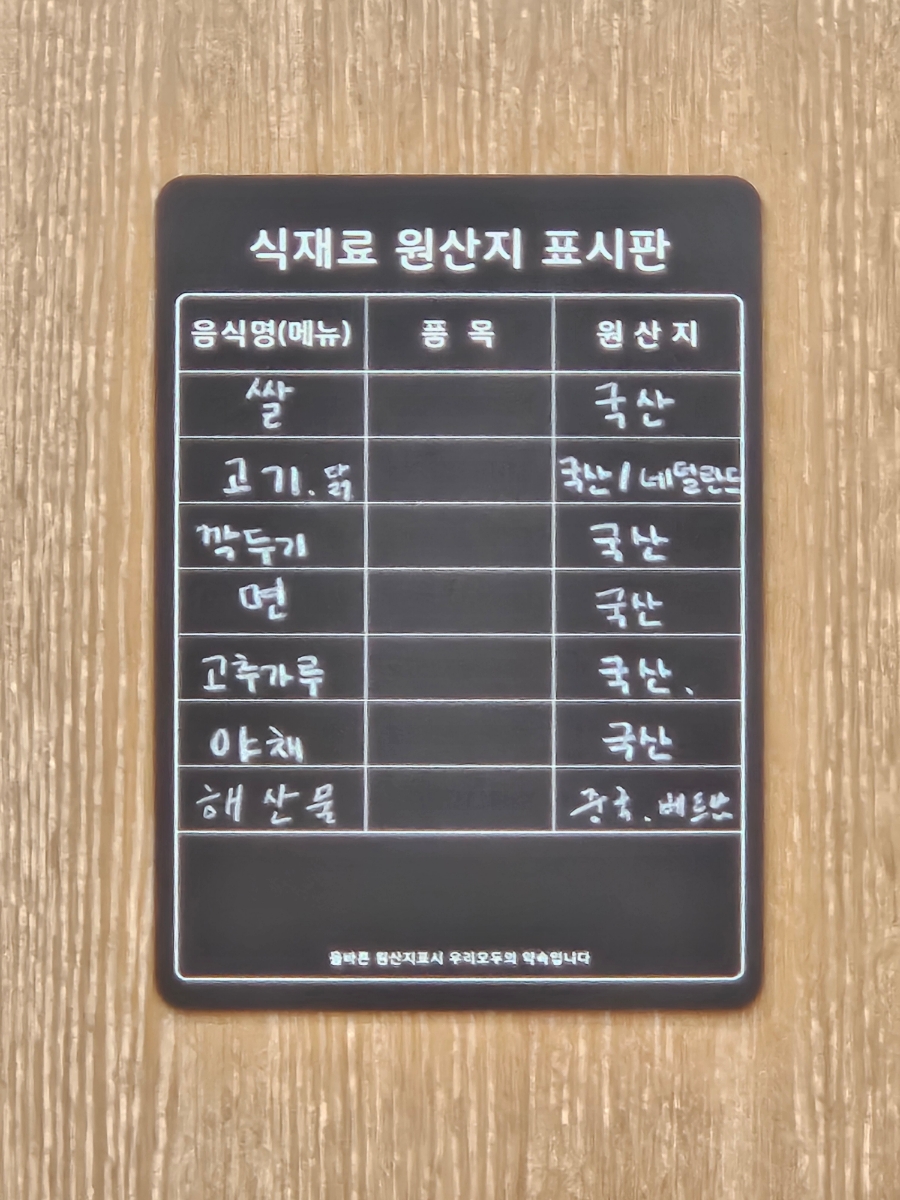 식재료 원산지 표시판
음식명(메뉴) 품 목 원 산 지
쌀 국산
고기.닭 국산/네덜란드
깍두기 국산
면 국산
고추가루 국산.
야채 국산
해산물 중국.베트남
올바른 원산지표시 우리모두의 약속입니다